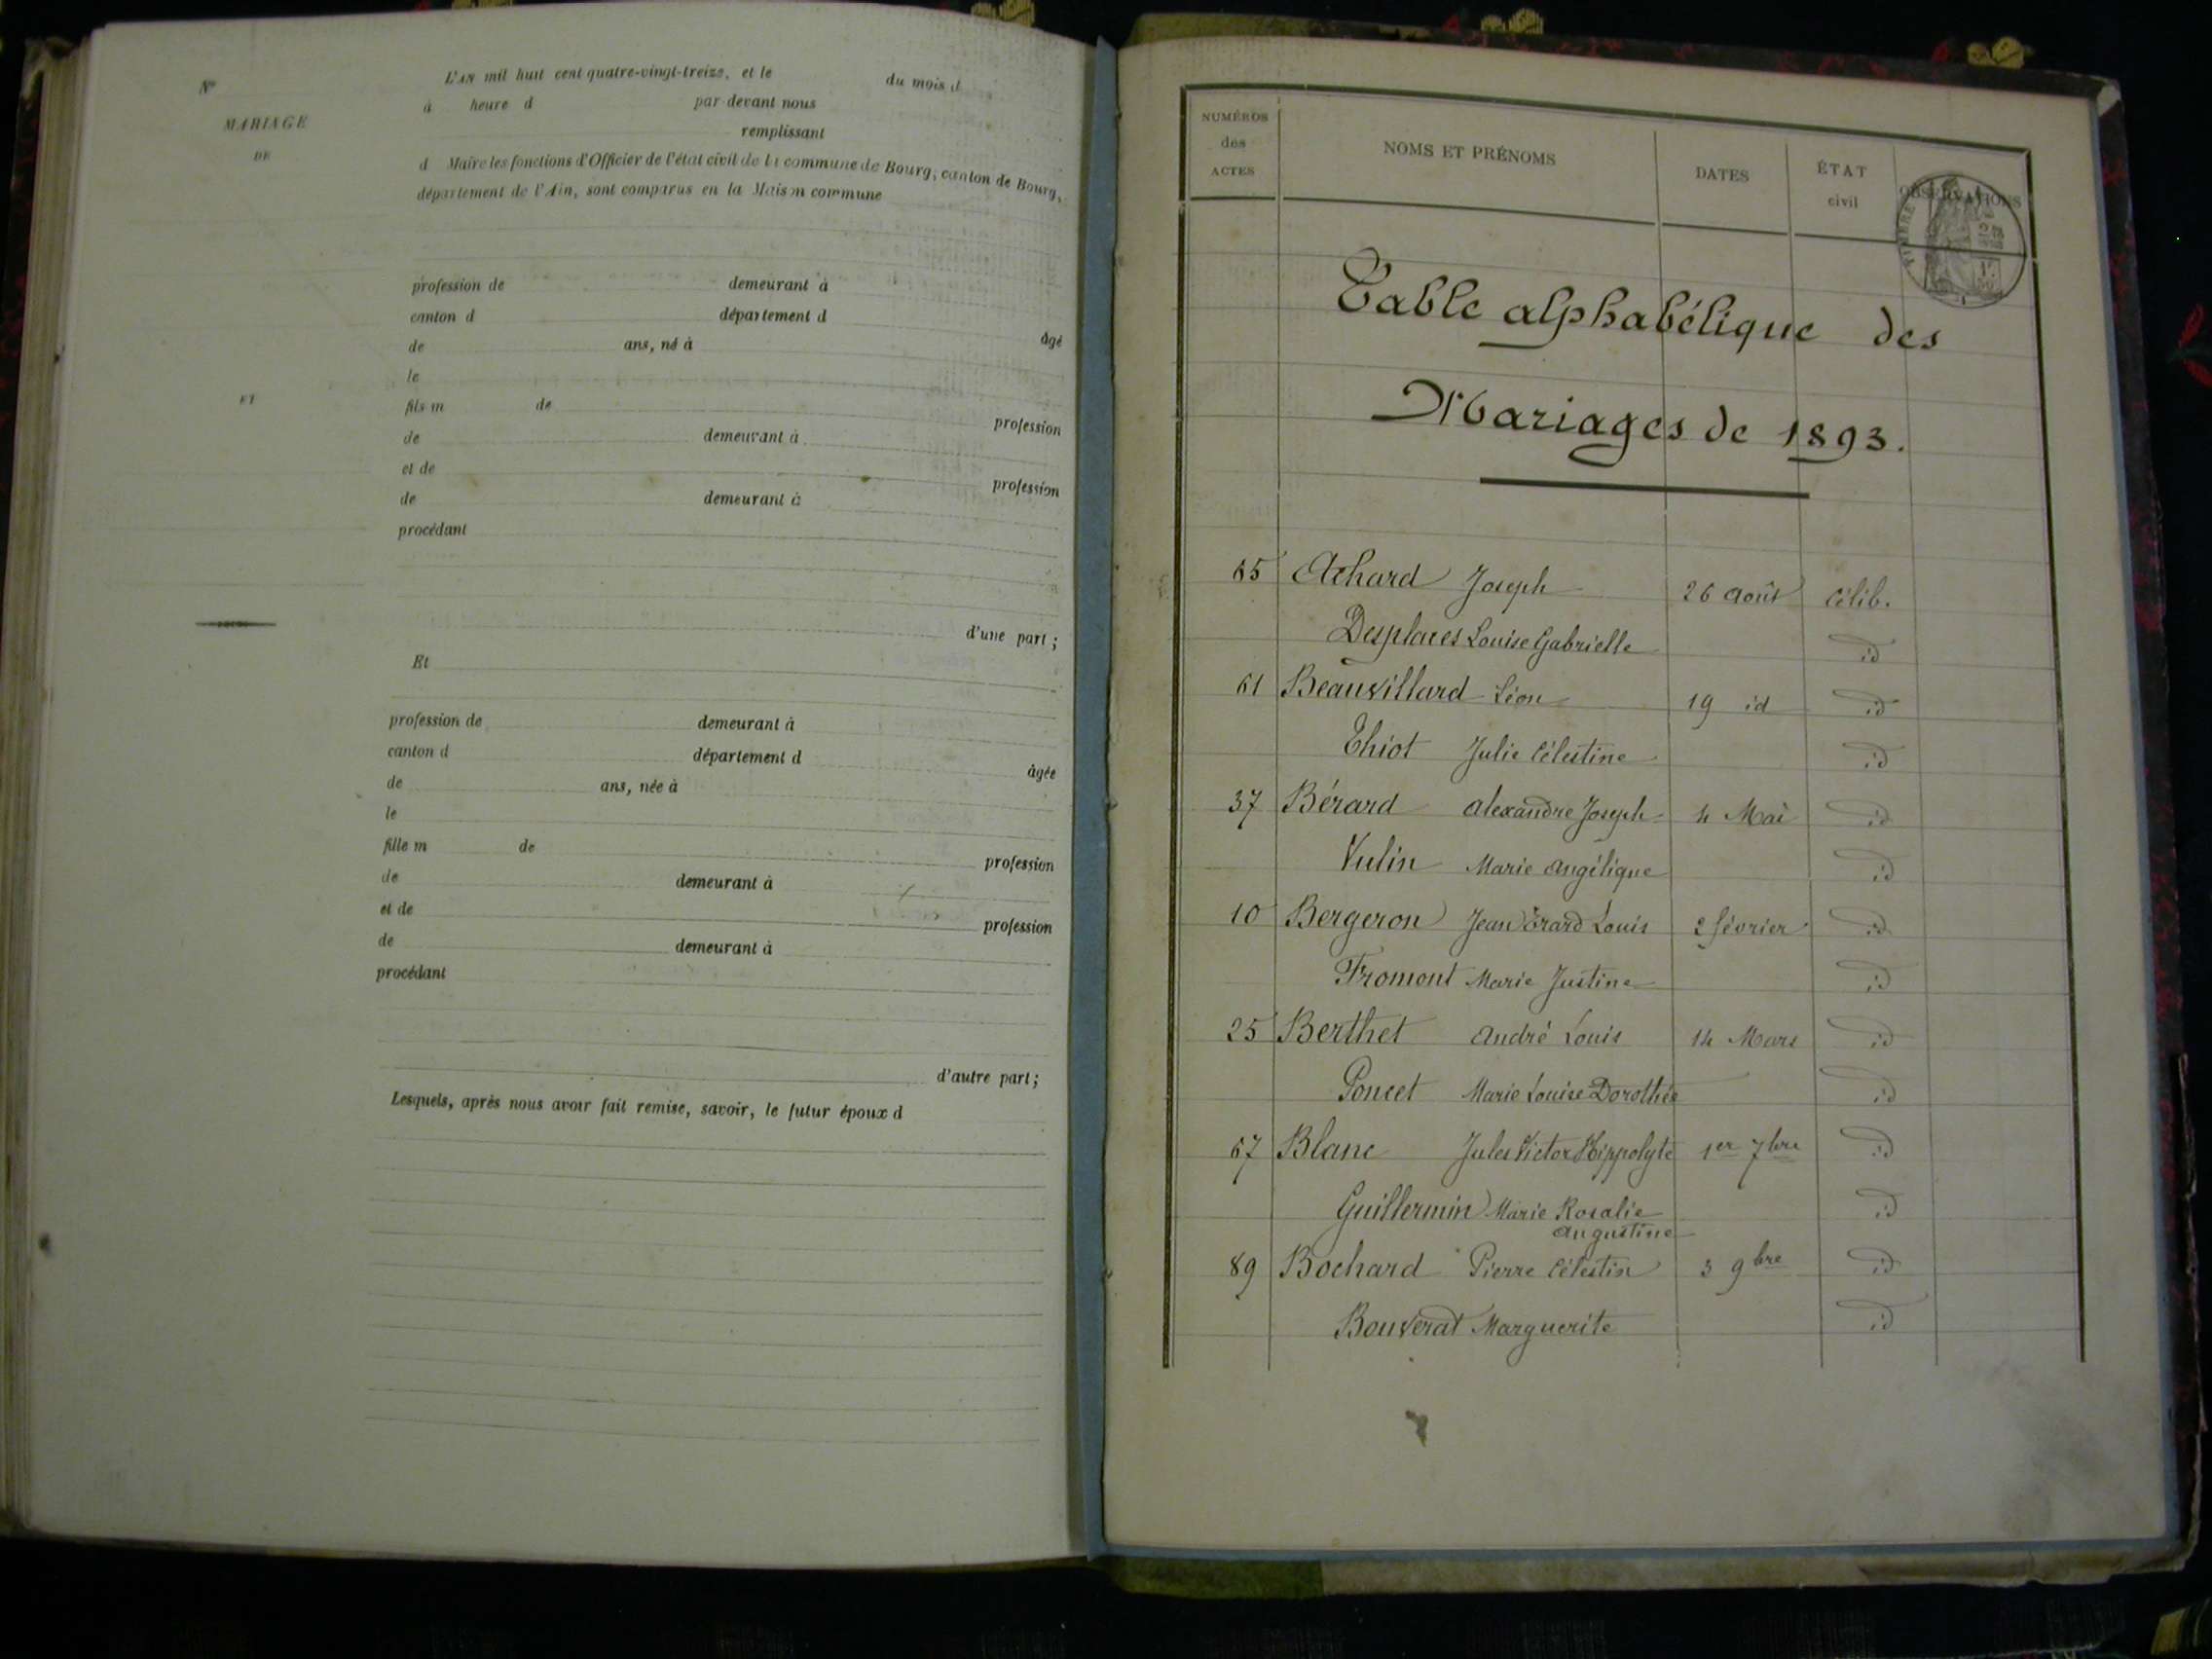 N°
MARIAGE
DE
ET
L'AN mil huit cent quatre-vingt-treize, et le du mois d
à heure d par devant nous
remplissant
d Maire les fonctions d'Officier de l'état civil de la commune de Bourg, canton de Bourg,
département de l'Ain, sont comparus en la Maison commune
profession de demeurant à
canton d département d
âgé
de ans, né à
le
fils m de
profession
de demeurant à
et de
profession
de demeurant à
procédant
d'une part ;
Et
profession de demeurant à
canton d département d
âgée
de ans, née à
le
fille m de
profession
de demeurant à
et de
profession
de demeurant à
procédant
d'autre part ;
Lesquels, après nous avoir fait remise, savoir, le futur époux d
NUMÉROS
des
ACTES
NOMS ET PRÉNOMS
DATES
ÉTAT
civil
OBSERVATIONS
Table alphabétique des
Mariages de 1893.
65 Achard Joseph 26 août célib.
Desplaces Louise Gabrielle id
61 Beauvillard Léon 19 id id
Thiot Julie Célestine id
37 Bérard Alexandre Joseph 4 Mai id
Vulin Marie Angélique id
10 Bergeron Jean Érard Louis 2 février id
Fromont Marie Justine id
25 Berthet André Louis 14 Mars id
Poncet Marie Louise Dorothée id
67 Blanc Jules Victor Hippolyte 1er 7bre id
Guillermin Marie Rosalie id
Augustine
89 Bochard Pierre Célestin 3 9bre id
Bouverat Marguerite id